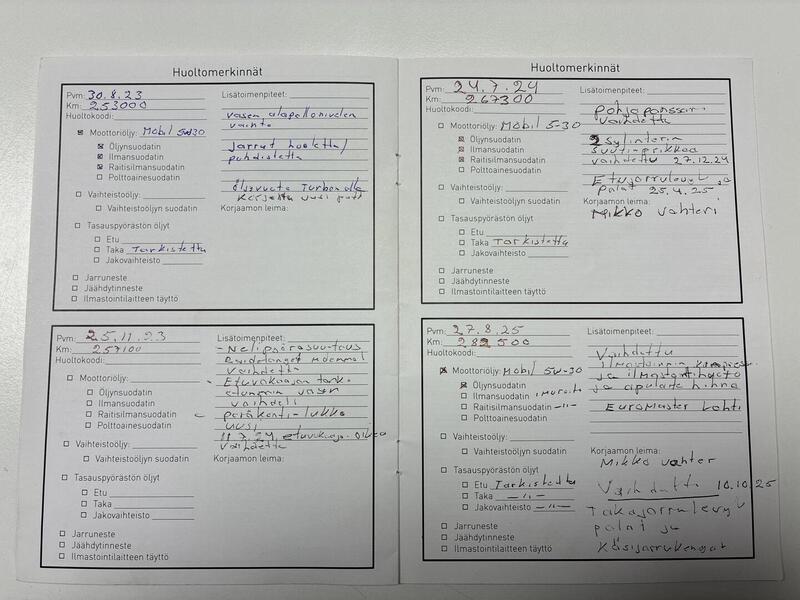 Huoltomerkinnät
Pvm: 30.8.23
Km: 253000
Huoltokoodi:
Moottoriöljy: Mobil 5w30
Öljynsuodatin
Ilmansuodatin
Raitisilmansuodatin
Polttoainesuodatin
Vaihteistoöljy:
Vaihteistoöljyn suodatin
Tasauspyörästön öljyt
Etu
Taka Tarkistettu
Jakovaihteisto
Jarruneste
Jäähdytinneste
Ilmastointilaitteen täyttö
Lisätoimenpiteet:
Vasen alapallonivelen
vaihto
Jarrut huollettu/
puhdistettu
Öljyvuoto Turbon alla
uusi
Korjaamon leima:
Pvm: 25.11.23
Km: 257100
Huoltokoodi:
Moottoriöljy:
Öljynsuodatin
Ilmansuodatin
Raitisilmansuodatin
Polttoainesuodatin
Vaihteistoöljy:
Vaihteistoöljyn suodatin
Tasauspyörästön öljyt
Etu
Taka
Jakovaihteisto
Jarruneste
Jäähdytinneste
Ilmastointilaitteen täyttö
Lisätoimenpiteet:
- Nelipyöräsuuntaus
Raidetangot molemmat
vaihdettu
- Etuvakaajan tanko
vasen
peräkontti-lukko
uusi
11.7.24 etuvakaaja oikea
vaihdettu
Korjaamon leima:
Huoltomerkinnät
Pvm: 24.7.24
Km: 267300
Huoltokoodi:
Moottoriöljy: Mobil 5-30
Öljynsuodatin
Ilmansuodatin
Raitisilmansuodatin
Polttoainesuodatin
Vaihteistoöljy:
Vaihteistoöljyn suodatin
Tasauspyörästön öljyt
Etu
Taka Tarkistettu
Jakovaihteisto
Jarruneste
Jäähdytinneste
Ilmastointilaitteen täyttö
Lisätoimenpiteet:
Pohjapanssari
vaihdettu
Sylinterin
suutinprikka
vaihdettu 27.12.24
Etujarrulevyt ja
palat 25.4.25
Korjaamon leima:
Mikko Vahteri
Pvm: 27.8.25
Km: 282500
Huoltokoodi:
Moottoriöljy: Mobil 5w-30
Öljynsuodatin
Ilmansuodatin imuroitu
Raitisilmansuodatin -"-
Polttoainesuodatin
Vaihteistoöljy:
Vaihteistoöljyn suodatin
Tasauspyörästön öljyt
Etu Tarkistettu
Taka -"-
Jakovaihteisto -"-
Jarruneste
Jäähdytinneste
Ilmastointilaitteen täyttö
Lisätoimenpiteet:
Vaihdettu
ilmastoinnin
ja ilmastointihuolto
ja apulaite hihna
EuroMaster Lahti
Korjaamon leima:
Mikko Vahter
Vaihdettu 10.10.25
Takajarrulevyt
palat ja
Käsijarrukengät